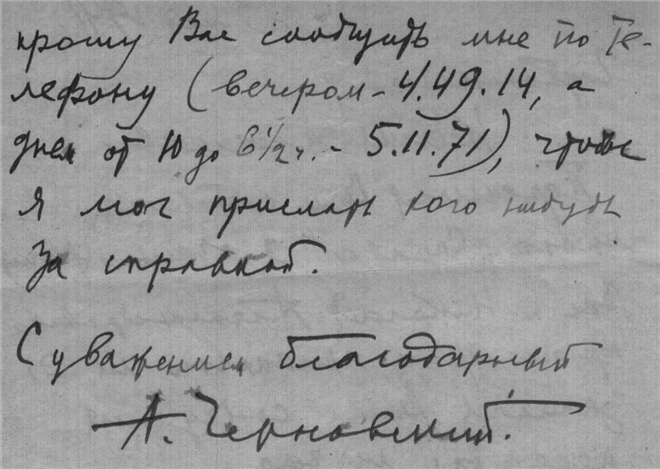 прошу Вас сообщить мне по те-
лефону (вечером - 4.49.14, а
днем от 10 до 6 1/2 ч. - 5.11.71), чтобы
я мог прислать кого нибудь
за справкой.
С уважением благодарный
А. Черновский.